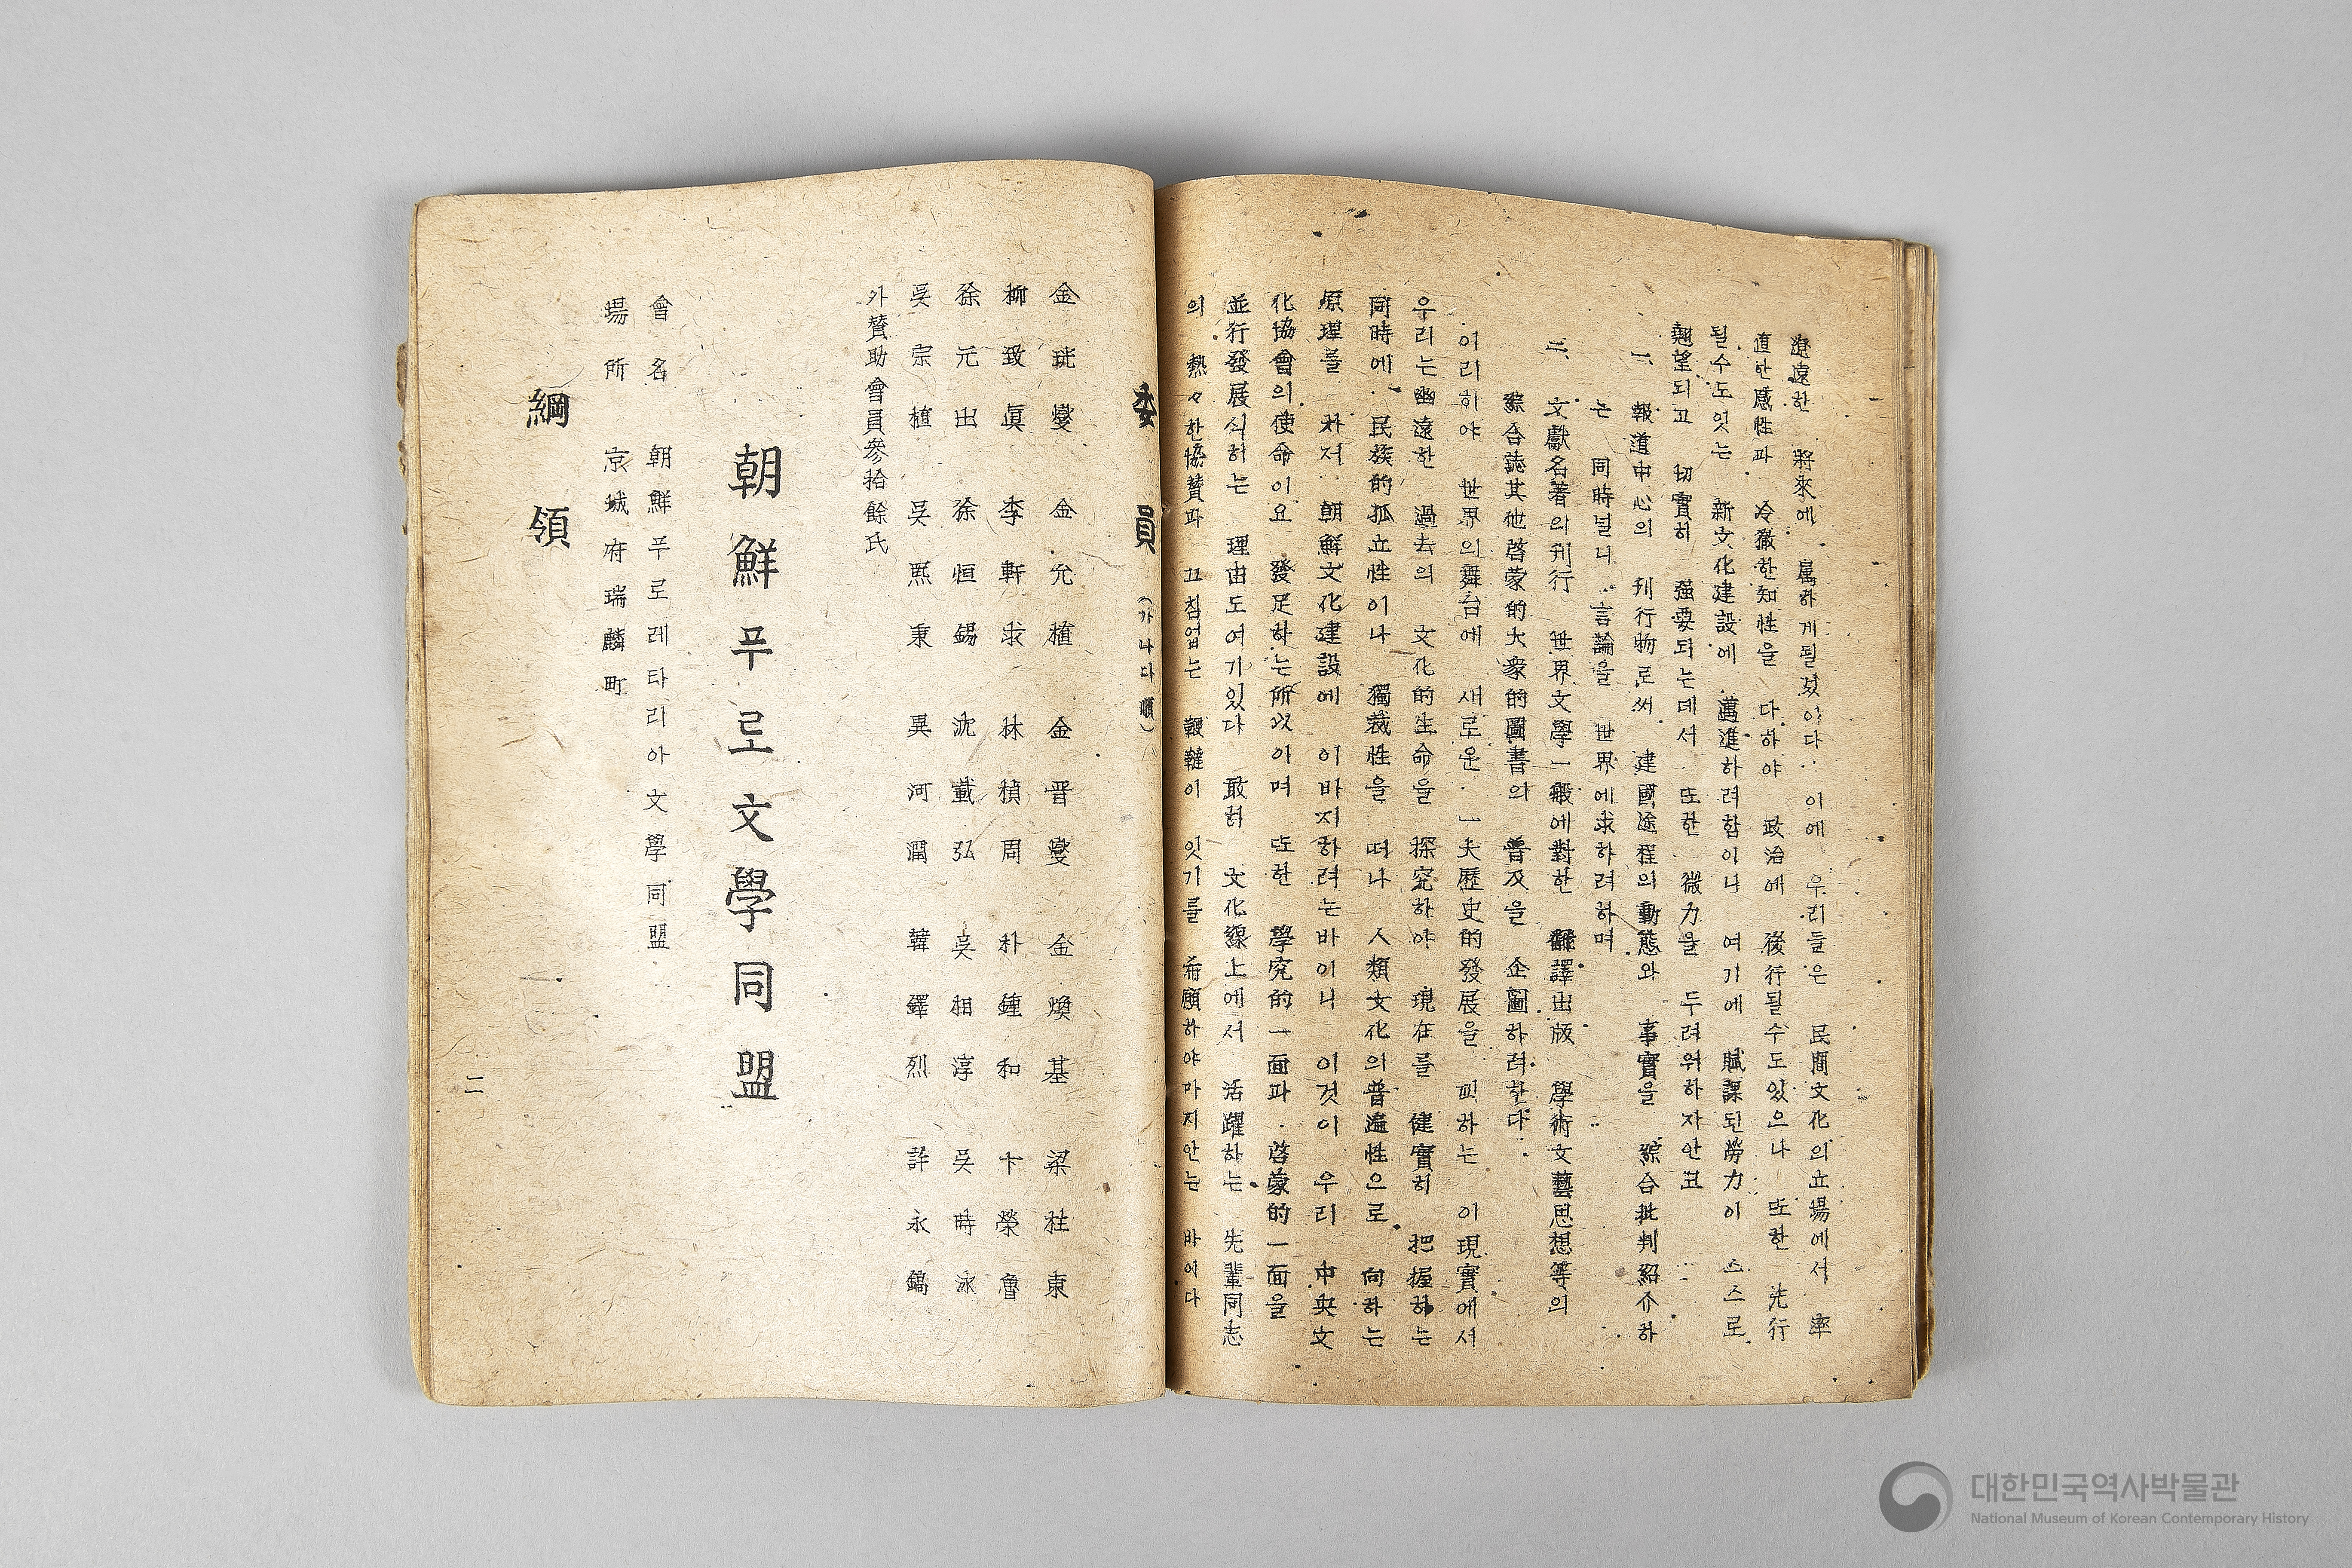 遼遠한 將來에 屬하게될것이다. 이에 우리들은 民間文化의立場에서 率
直한感性과 冷徹한知性을 다하야 政治에 後行될수도있으나 또한 先行
될수도잇는 新文化建設에 邁進하려함이나 여기에 賦課된勞力이 스스로
翹望되고 切實히 强要되는데서 또한 微力을 두려워하지안코
一、報道中心의 刊行物로써 建國途程의動態와 事實을 綜合批判紹介하
는 同時널니 言論을 世界에求하려하며
二、文獻名著의刊行 世界文學一般에對한 飜譯出版 學術文藝思想等의
綜合誌其他啓蒙的大衆的圖書의 普及을 企圖하려한다.
이리하야 世界의舞台에 새로운 一大歷史的發展을 꾀하는 이現實에서
우리는幽遠한 過去의 文化的生命을 探究하야 現在를 健實히 把握하는
同時에 民族的孤立性이나 獨裁性을 떠나 人類文化의普遍性으로 向하는
原理를 가저 朝鮮文化建設에 이바지하려는바이니 이것이 우리 中央文
化協會의使命이요 發足하는所以이며 또한 學究的一面과 啓蒙的一面을
並行發展식히는 理由도여기있다 敢히 文化線上에서 活躍하는 先輩同志
의 熱々한協贊과 끄침업는 報鞭이 잇기를 希願하야마지안는 바이다
委員 (가나다順)
金珖燮 金允植 金晋燮 金煥基 梁柱東
柳致眞 李軒求 林楨周 朴鍾和 卞榮魯
徐元出 徐恒錫 沈載弘 吳相淳 吳時泳
吳宗植 吳熙秉 異河潤 韓鐸烈 許永鎬
外贊助會員參拾餘氏
朝鮮푸로文學同盟
會名 朝鮮푸로레타리아文學同盟
場所 京城府瑞麟町
綱領
二
대한민국역사박물관
National Museum of Korean Contemporary History